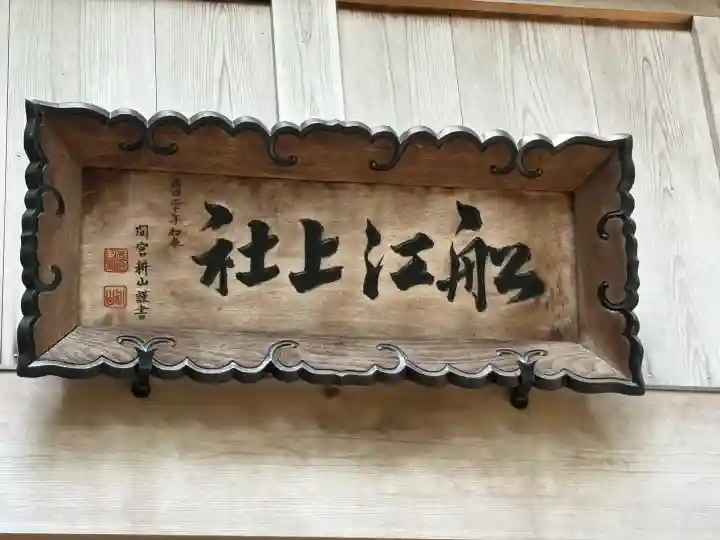 船江上社
間宮耕山謹書